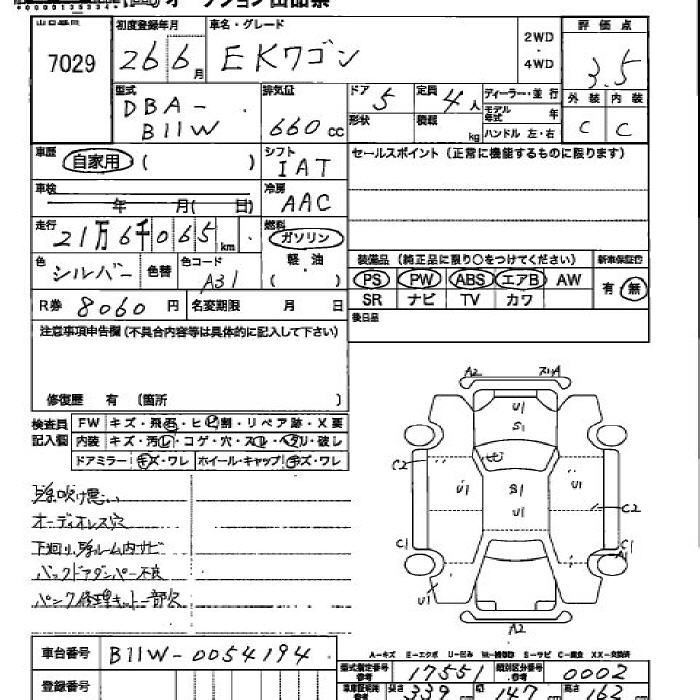 7029
初度登録年月
26 6月
車名・グレード
EKワゴン
2WD
・
4WD
評価点
3.5
外装 内装
C C
型式
DBA-
B11W
排気量
660cc
ドア 5
定員 4人
形状
積載 kg
ディーラー・並行
モデル年式 年
ハンドル 左・右
車歴 自家用 ( )
シフト
IAT
セールスポイント (正常に機能するものに限ります)
車検 年 月( 日)
冷房
AAC
走行
21万6千065km
燃料
ガソリン
軽・油
( )
色 シルバー 色替
色コード
A31
装備品 (純正品に限り○をつけてください)
新車保証書
PS PW ABS エアB AW
SR ナビ TV カワ
有・無
R券 8060円
名変期限 月 日
後日品
注意事項申告欄 (不具合内容等は具体的に記入して下さい)
修復歴 有 (箇所 )
検査員記入欄
FW キズ・飛石・ヒビ割・リペア跡・X要
内装 キズ・汚レ・コゲ・穴・スレ・ヘタリ・破レ
ドアミラー キズ・ワレ ホイール・キャップ キズ・ワレ
オーディオレス穴
バックドアダンパー不良
パンク修理キット一部欠
A2
U1
S1
C2
U1
S1
U1
U1
C2
C1
C1
A1
U1
A2
A-キズ E-エクボ U-凹み W-補修跡 S-サビ C-腐食 XX-交換済
車台番号 B11W-0054194
型式指定番号 17551
類別区分番号 0002
登録番号
長さ 339cm
幅 147cm
高さ 162cm